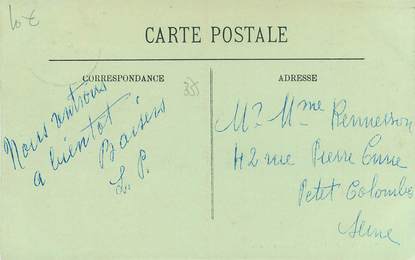 10€
CARTE POSTALE
CORRESPONDANCE
ADRESSE
335
Nous rentrons
a bientôt
Baisers
L. P.
Mr. Mme Rennesson
42 rue Pierre Curie
Petit Colombes
Seine